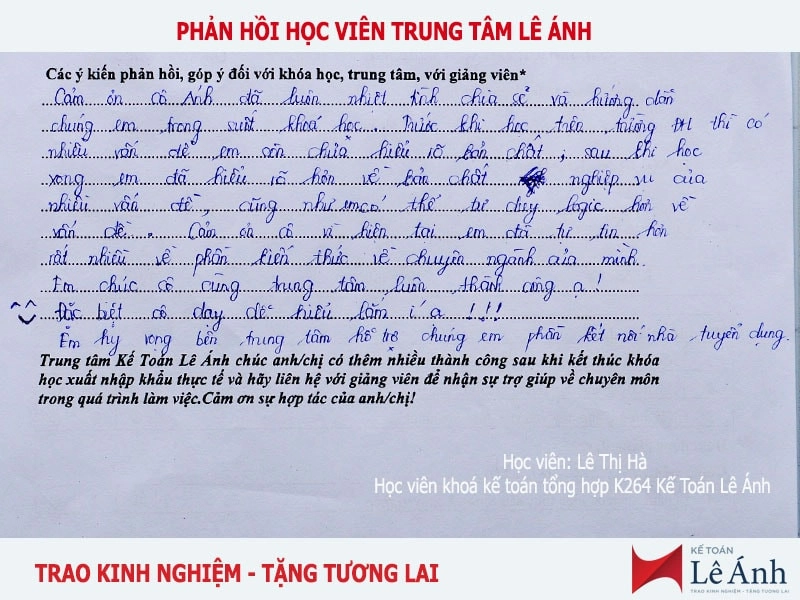 PHẢN HỒI HỌC VIÊN TRUNG TÂM LÊ ÁNH
Các ý kiến phản hồi, góp ý đối với khóa học, trung tâm, với giảng viên*
Cảm ơn cô Ánh đã luôn nhiệt tình chia sẻ và hướng dẫn
chúng em trong suốt khoá học. Trước khi học, trên trường ĐH thì có
nhiều vấn đề em còn chưa hiểu rõ bản chất, sau khi học
xong em đã hiểu rõ hơn về bản chất nghiệp vụ của
nhiều vấn đề, cũng như em có thể tư duy logic hơn về
vấn đề. Cảm ơn cô vì hiện tại em đã tự tin hơn
rất nhiều về phần kiến thức về chuyên ngành của mình.
Em chúc cô cùng trung tâm luôn thành công ạ!
^^ Đặc biệt cô dạy dễ hiểu lắm í ạ!!!
Em hy vọng bên trung tâm hỗ trợ chúng em phần kết nối nhà tuyển dụng.
Trung tâm Kế Toán Lê Ánh chúc anh/chị có thêm nhiều thành công sau khi kết thúc khóa
học xuất nhập khẩu thực tế và hãy liên hệ với giảng viên để nhận sự trợ giúp về chuyên môn
trong quá trình làm việc.Cảm ơn sự hợp tác của anh/chị!
Học viên: Lê Thị Hà
Học viên khoá kế toán tổng hợp K264 Kế Toán Lê Ánh
TRAO KINH NGHIỆM - TẶNG TƯƠNG LAI
KẾ TOÁN
Lê Ánh
TRAO KINH NGHIỆM - TẶNG TƯƠNG LAI